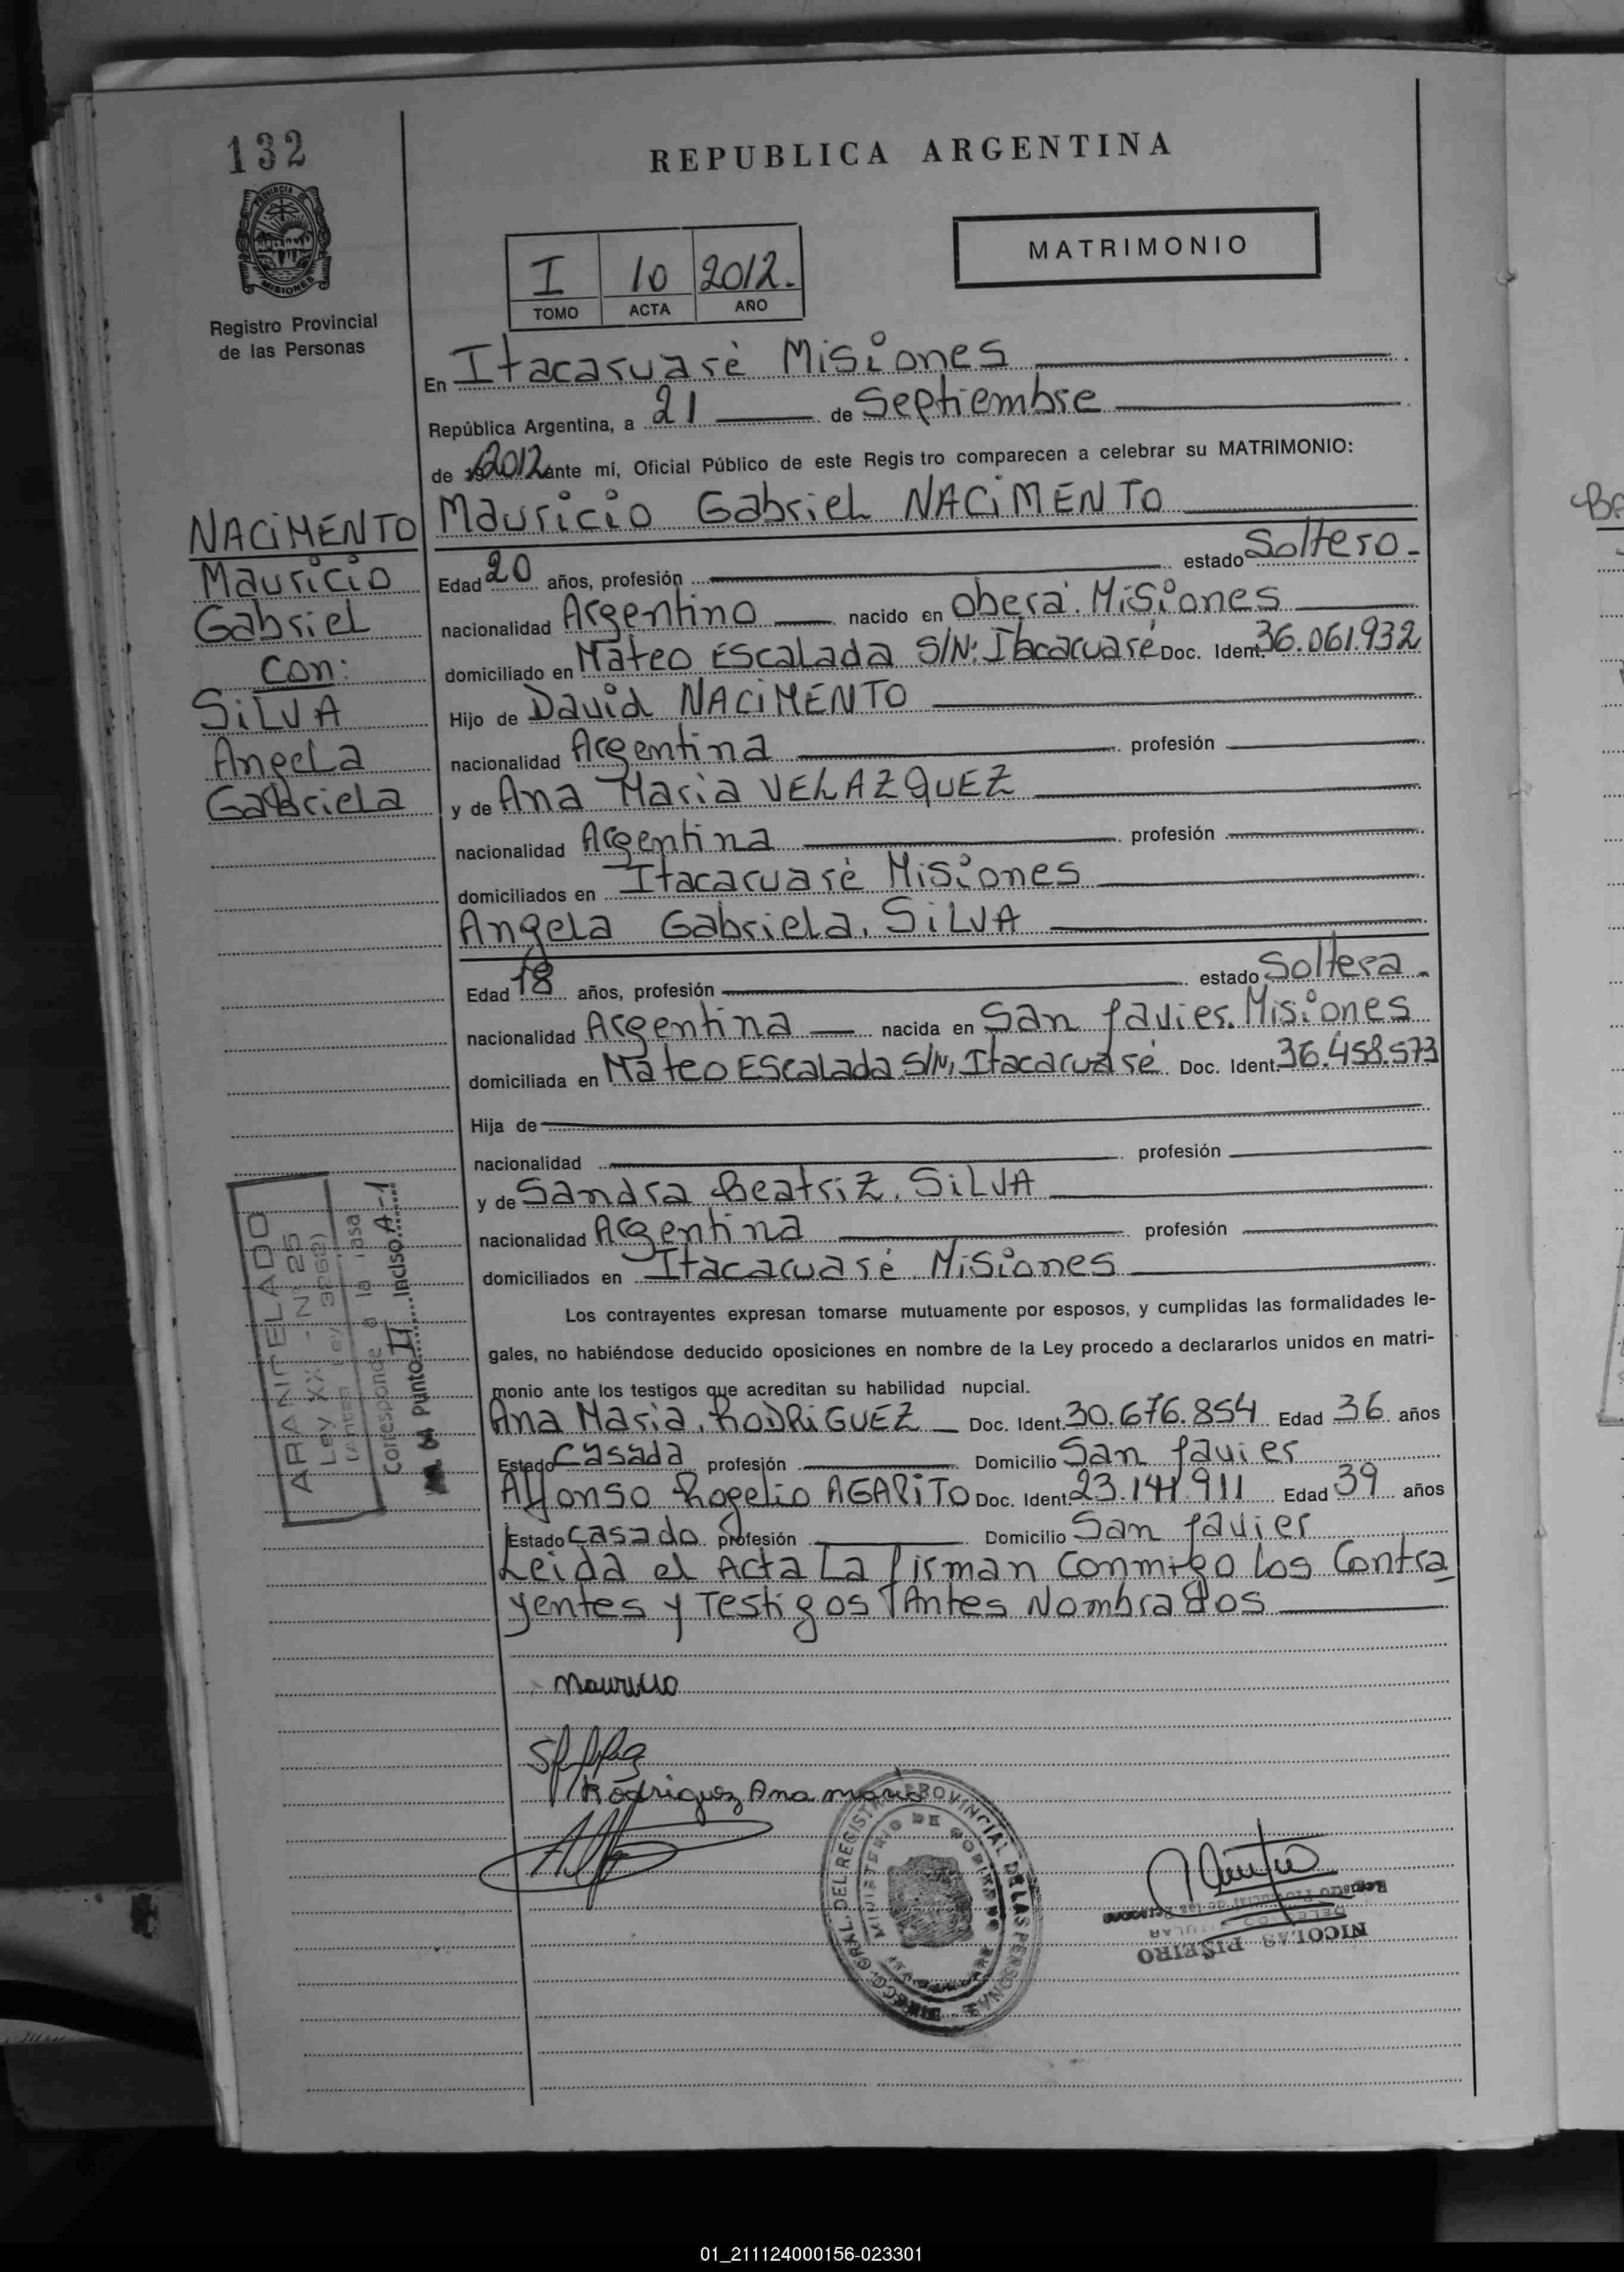 132
REPUBLICA ARGENTINA
MATRIMONIO
PROVINCIA DE
MISIONES
Registro Provincial
de las Personas
I 10 2012.
TOMO ACTA AÑO
En Itacaruaré Misiones
República Argentina, a 21 de Septiembre
de 2012 ante mí, Oficial Público de este Regis tro comparecen a celebrar su MATRIMONIO:
NACiMENTO
Mauricio
Gabriel
con:
SiLVA
Angela
Gabriela
Mauricio Gabriel NACiMENTO
Edad 20 años, profesión estado Soltero
nacionalidad Argentino nacido en Oberá. Misiones
domiciliado en Mateo Escalada S/N: Itacaruaré Doc. Ident. 36.061.932
Hijo de David NACiMENTO
nacionalidad Argentina profesión
y de Ana Maria VELAZQUEZ
nacionalidad Argentina profesión
domiciliados en Itacaruaré Misiones
Angela Gabriela. SiLVA
Edad 18 años, profesión estado Soltera
nacionalidad Argentina nacida en San Javier. Misiones
domiciliada en Mateo Escalada S/N, Itacaruaré Doc. Ident. 36.458.573
Hija de
nacionalidad profesión
y de Sandra Beatriz. SiLVA
nacionalidad Argentina profesión
domiciliados en Itacaruaré Misiones
Los contrayentes expresan tomarse mutuamente por esposos, y cumplidas las formalidades le-
gales, no habiéndose deducido oposiciones en nombre de la Ley procedo a declararlos unidos en matri-
monio ante los testigos que acreditan su habilidad nupcial.
Ana Maria. RODRiGUEZ Doc. Ident. 30.676.854 Edad 36 años
Estado Casada profesión Domicilio San Javier
Alfonso Rogelio AGAPiTO Doc. Ident. 23.141.911 Edad 39 años
Estado Casado profesión Domicilio San Javier
Leida el Acta La firman Conmigo los Contra
yentes y Testigos Antes Nombrados
ARANCELADO
Ley XX - Nº 25
Corresponde a la Tasa
Punto II Inciso A-1
Mauricio
Rodriguez Ana maria
DIRECC. GRAL. DEL REGISTRO PROVINCIAL DE LAS PERSONAS
MINISTERIO DE GOBIERNO
NICOLAS PIÑEIRO
DELEGADO TITULAR
Registro Provincial de las Personas
01_211124000156-023301